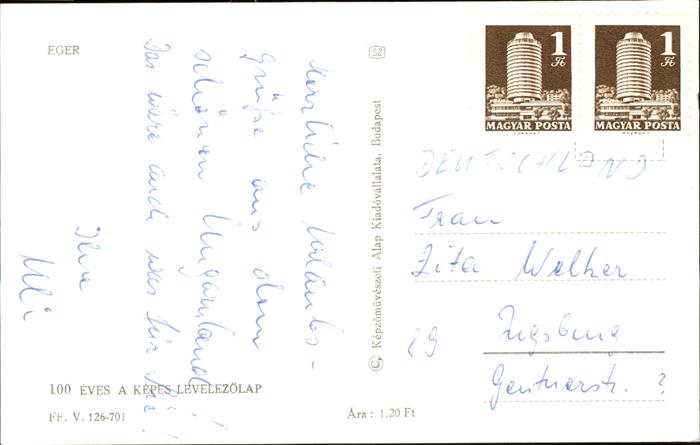 EGER
Herzliche Urlaubs-
grüße aus dem
schönen Ungarnland!
Das wäre auch was für Sie!
Ihre
Uli
100 ÉVES A KÉPES LEVELEZŐLAP
FF. V. 126-701
Ára: 1,20 Ft
SZ
© Képzőművészeti Alap Kiadóvállalata, Budapest
1 Ft
MAGYAR POSTA
1 Ft
MAGYAR POSTA
DEUTSCHLAND
Frau
Zita Welker
89 Augsburg
Gentnerstr. ?